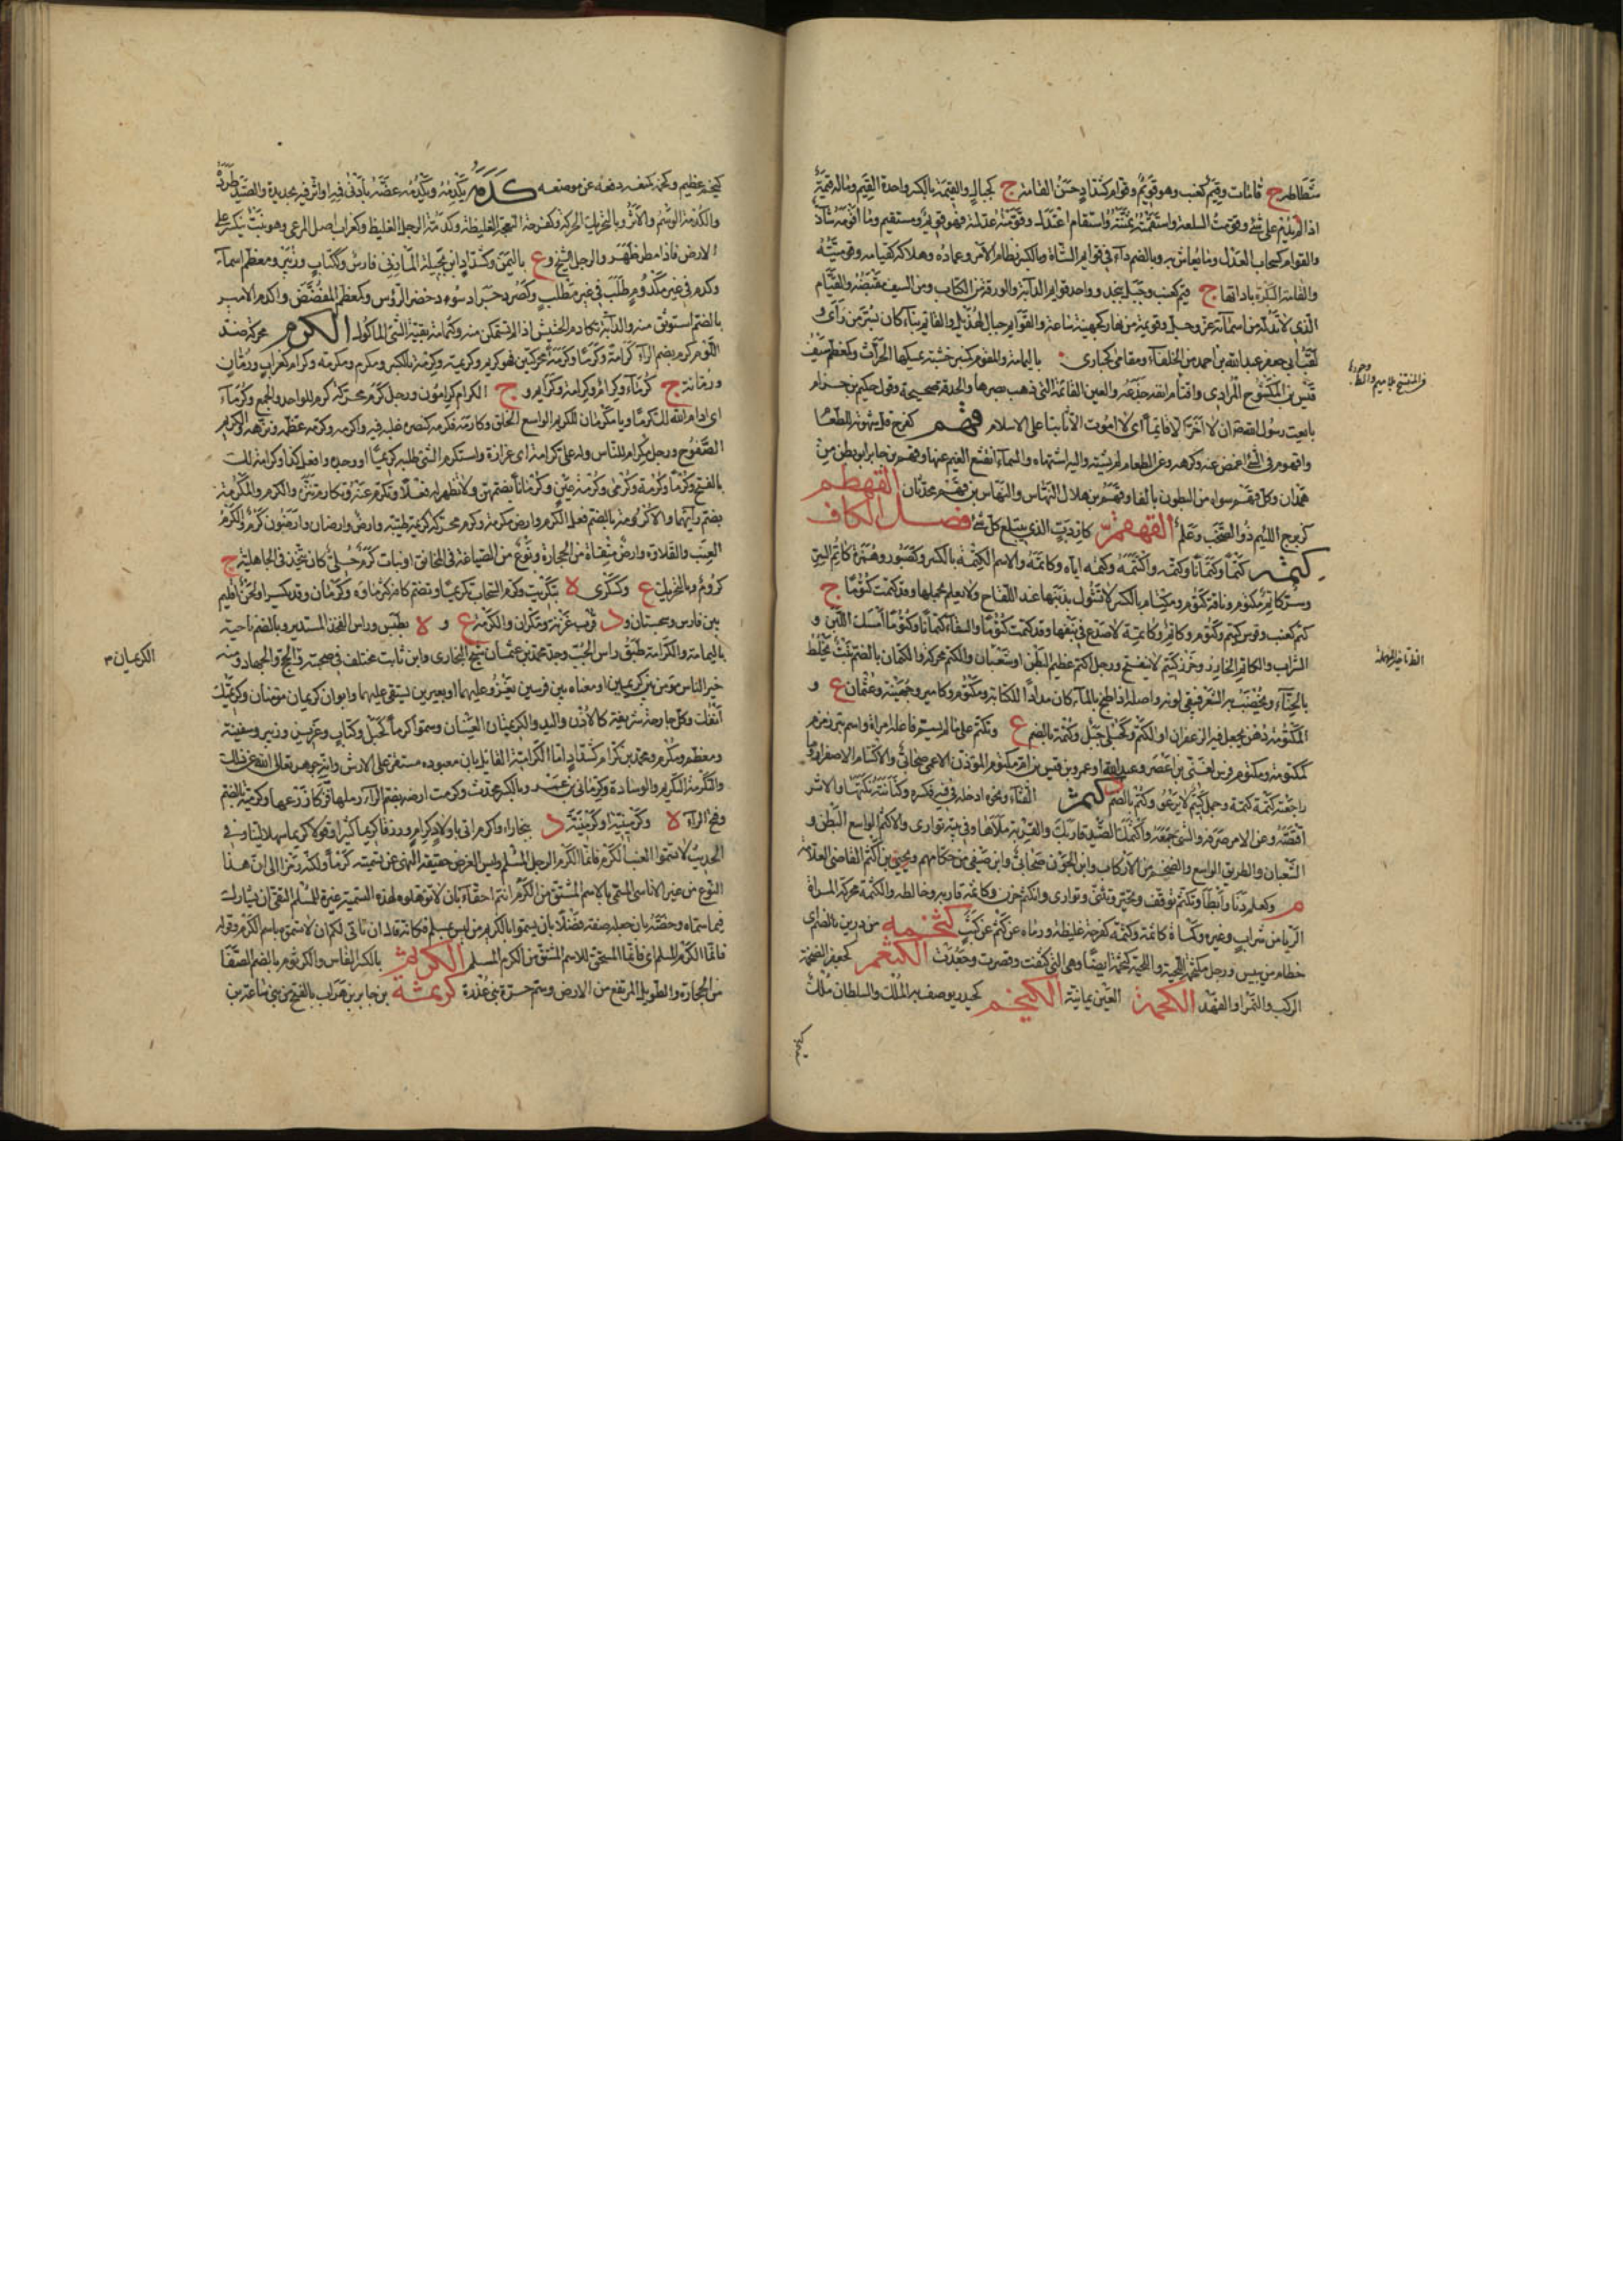 شطاط ج قامات وقيم كعنب وهو قويم وقوام كشداد حسن القامة ج كجبال والقيمة بالكسر واحدة القيم وماله قيمة
اذا لم يدم على شئ وقومت السلعة واستقمته ثمنته واستقام اعتدل وقومته عدلته فهو قويم ومستقيم وما اقومه شاذ
والقوام كسحاب العدل وما يعاش به وبالضم داء في قوائم الشاة وبالكسر نظام الامر وعماده وملاكه كقيامه وقوميته
والقامة البكرة باداتها ج قيم كعنب وجبل بنجد وواحد قوائم الدابة والورقة من الكتاب ومن السيف مقبضه والقيوم
الذي لا ند له من اسمائه عز وجل وقويمة من نهار كجهينة ساعة والقوائم جبال لهذيل والقائم بناء كان بسر من راى و
لقب ابي جعفر عبد الله بن احمد من الخلفاء ومقامى كحبارى باليمامة والمقوم كمنبر خشبة يمسكها الحراث وكمعظم سيف
قيس بن المكشوح المرادي واقتام انفه جدعه والعين القائمة التي ذهب بصرها والحدقة صحيحة وقول حكيم بن حزام
بايعت رسول الله ان لا اخر الا قائما اي لا اموت الا ثابتا على الاسلام قهم كفرح قل شهوته للطعام
واقهم في الشئ اغمض وعنه كرهه وعن الطعام لم يشتهه واليه اشتهاه والسماء انقشع الغيم عنها وقهم بن جابر ابو بطن من
همدان وكل قهم سواه من البطون بالفاء وقهم بن هلال بن النهاس والنهاس بن قهم محدثان القهطم
كزبرج اللئيم ذو الصخب وعلم القهقم كاردب الذي يبتلع كل شئ فصل الكاف
كتمه كتما وكتمانا وكتمه واكتتمه وكتمه اياه وكاتمه والاسم الكتمة بالكسر وكصبور وهمزة كاتم السر
وسر كاتم مكتوم وناقة كتوم ومكتام بالكسر لا تشول بذنبها عند اللقاح ولا يعلم بحملها وقد كتمت كتوما ج
كتم كعنب وقوس كتيم وكتوم وكاتم وكاتمة لا صدع في نبعها وقد كتمت كتوما والسقاء كتمانا وكتوما امسك اللبن و
الشراب والكاتم الخارز وخرز كتيم لا ينضح ورجل اكتم عظيم البطن او شبعان والكتم محركة والكتمان بالضم نبت يخلط
بالحناء ويخضب به الشعر فيبقى لونه واصله اذا طبخ بالماء كان مدادا للكتابة ومكتوم وكامير وجهينة وعثمان ع و
المكتومة دهن يجعل فيه الزعفران او الكتم وكحبلى جبل وكتمة بالضم ع وتكتم على ما لم يسم فاعله امراة واسم بئر زمزم
كمكتومة ومكتوم فرس لغني بن اعصر وعبد الله او عمرو بن قيس بن ام مكتوم المؤذن الاعمى صحابي والاكتام الاصفرار وما
راجعته كتمة كلمة وجمل كتيم لا يرغو وكتم بالضم د كثم القثاء ونحوه ادخله في فيه فكسره وكنانته نكبها والاثر
اقتصه وعن الامر صرفه والشئ جمعه واكثمك الصيد قاربك والقربة ملاها وفي بيته توارى والاكثم الواسع البطن و
الشبعان والطريق الواسع والضخم من الاركاب وابن الجون صحابي وابن صيفي من حكامهم ويحيى بن اكثم القاضي العلامة
م وكعلم دنا وابطا وتكثم توقف وتحير وتثنى وتوارى وانكثم حزن وكاثمه قاربه وخالطه والكثمة محركة المراة
الريا من شراب وغيره وكماة كاثمة وكثمة كفرحة غليظة ورماه عن كثم عن كثب كثحمه من درين بالضم اي
حطام من يبيس ورجل مكثحم اللحية والحية كثحمة ايضا وهي التي كثفت وقصرت وجعدت الكثعم كجعفر الضخمة
الركب والنمر او الفهد الكحمة العين يمانية الكيخم كحيدر يوصف به الملك والسلطان ملك
كيخم عظيم وكخمه كمنعه دفعه عن موضعه كدمه يكدمه ويكدمه عضه بادنى فيه او اثر فيه بحديدة والصيد طرده
والكدمة الوسم والاثر وبالتحريك الحركة وكفرحة النعجة الغليظة وكدمة الرجل الغليظ وكغراب اصل المرعى وهو نبت يتكسر على
الارض فاذا مطر ظهر والرجل الشيخ وع باليمن وكشداد ابن بجيلة المازني فارس وككتاب وزبير ومعظم اسماء
وكدم في غير مكدم طلب في غير مطلب وكصرد جراد سود خضر الرؤس وكمعظم المعضض واكدم الاسير
بالضم استوثق منه والدابة تكادم الحشيش اذا لم تستمكن منه وكثمامة بقية الشئ الماكول الكرم محركة ضد
اللؤم كرم بضم الراء كرامة وكرما وكرمة محركتين فهو كريم وكريمة وكرمة بالكسر ومكرم ومكرمة وكرام كغراب ورمان
ورمانة ج كرماء وكرام وكرائم وج الكرام كرامون ورجل كرم محركة كريم للواحد والجمع وكرما
اي ادام الله لك كرما ويا مكرمان للكريم الواسع الخلق وكارمه فكرمه كنصره غلبه فيه واكرمه وكرمه عظمه ونزهه والكريم
الصفوح ورجل مكرام للناس وله علي كرامة اي عزازة واستكرم الشئ طلبه كريما او وجده وافعل كذا وكرامة لك
بالفتح وكرما وكرمة وكرمى وكرمة عين وكرمانا بضمهن ولا تظهر له فعلا وتكرم عنه وتكارم تنزه والمكرم والمكرمة
بضم رائهما والاكرومة بالضم فعل الكرم وارض مكرمة وكرم محركة كريمة طيبة وارض وارضان وارضون كرم والكرم
العنب والقلادة وارض مثقاة من الحجارة ونوع من الصياغة في المخانق او بنات كرم حلي كان يتخذ في الجاهلية ج
كروم وبالتحريك ع وكسكرى ة بتكريت وكرم السحاب تكريما وتضم كافه كثر ماؤه وكرمان وقد يكسر او لحن اقليم
بين فارس وسجستان ود قرب غزنة ومكران والكرمة ع و ة بطبس وراس الفخذ المستدير وبالضم ناحية
باليمامة والكرامة طبق راس الحب وجد محمد بن عثمان شيخ البخاري وابن ثابت مختلف في صحبته والكريمان الحج والجهاد ومنه
خير الناس مؤمن بين كريمين او معناه بين فرسين يغزو عليهما او بعيرين يستقي عليهما وابوان كريمان مؤمنان وكريمتك
انفك وكل جارحة شريفة كالاذن واليد والكريمتان العينان وسموا كرما كجبل وكتاب وعزيز وزبير وسفينة
ومعظم ومكرم ومحمد بن كرام كشداد امام الكرامية القائل بان معبوده مستقر على العرش وانه جوهر تعالى الله عن ذلك
والتكرمة التكريم والوسادة وكرماني بن عمرو بالكسر محدث وكرمت ارضه بضم الراء دملها فزكا زرعها وكرمية بالضم
وفتح الراء ة وكرمينية او كرمينة د ببخارا واكرم اتى باولاد كرام ورزقا كريما كثيرا وقولا كريما سهلا لينا وفي
الحديث لا تسموا العنب الكرم فانما الكرم الرجل المسلم وليس الغرض حقيقة النهي عن تسميته كرما ولكنه رمز الى ان هذا
النوع من غير الاناسي المسمى بالاسم المشتق من الكرم انتم احقاء بان لا تؤهلوه لهذه التسمية غيرة للمسلم التقي ان يشارك
فيما سماه وخصه بان جعله صفته فضلا بان يسموا بالكريم من ليس بمسلم فكانه قال ان تاتى لكم ان لا تسموه باسم الكرم وقوله
فانما الكرم المسلم اي فانما المستحق للاسم المشتق من الكرم المسلم الكرتيم بالكسر الفاس والكرتوم بالضم الصفا
من الحجارة والطويل المرتفع من الارض ويضم حرة بني عذرة كريمثة بن جابر بن هراب بالفتح من بني ساعدة بن
الكريمان